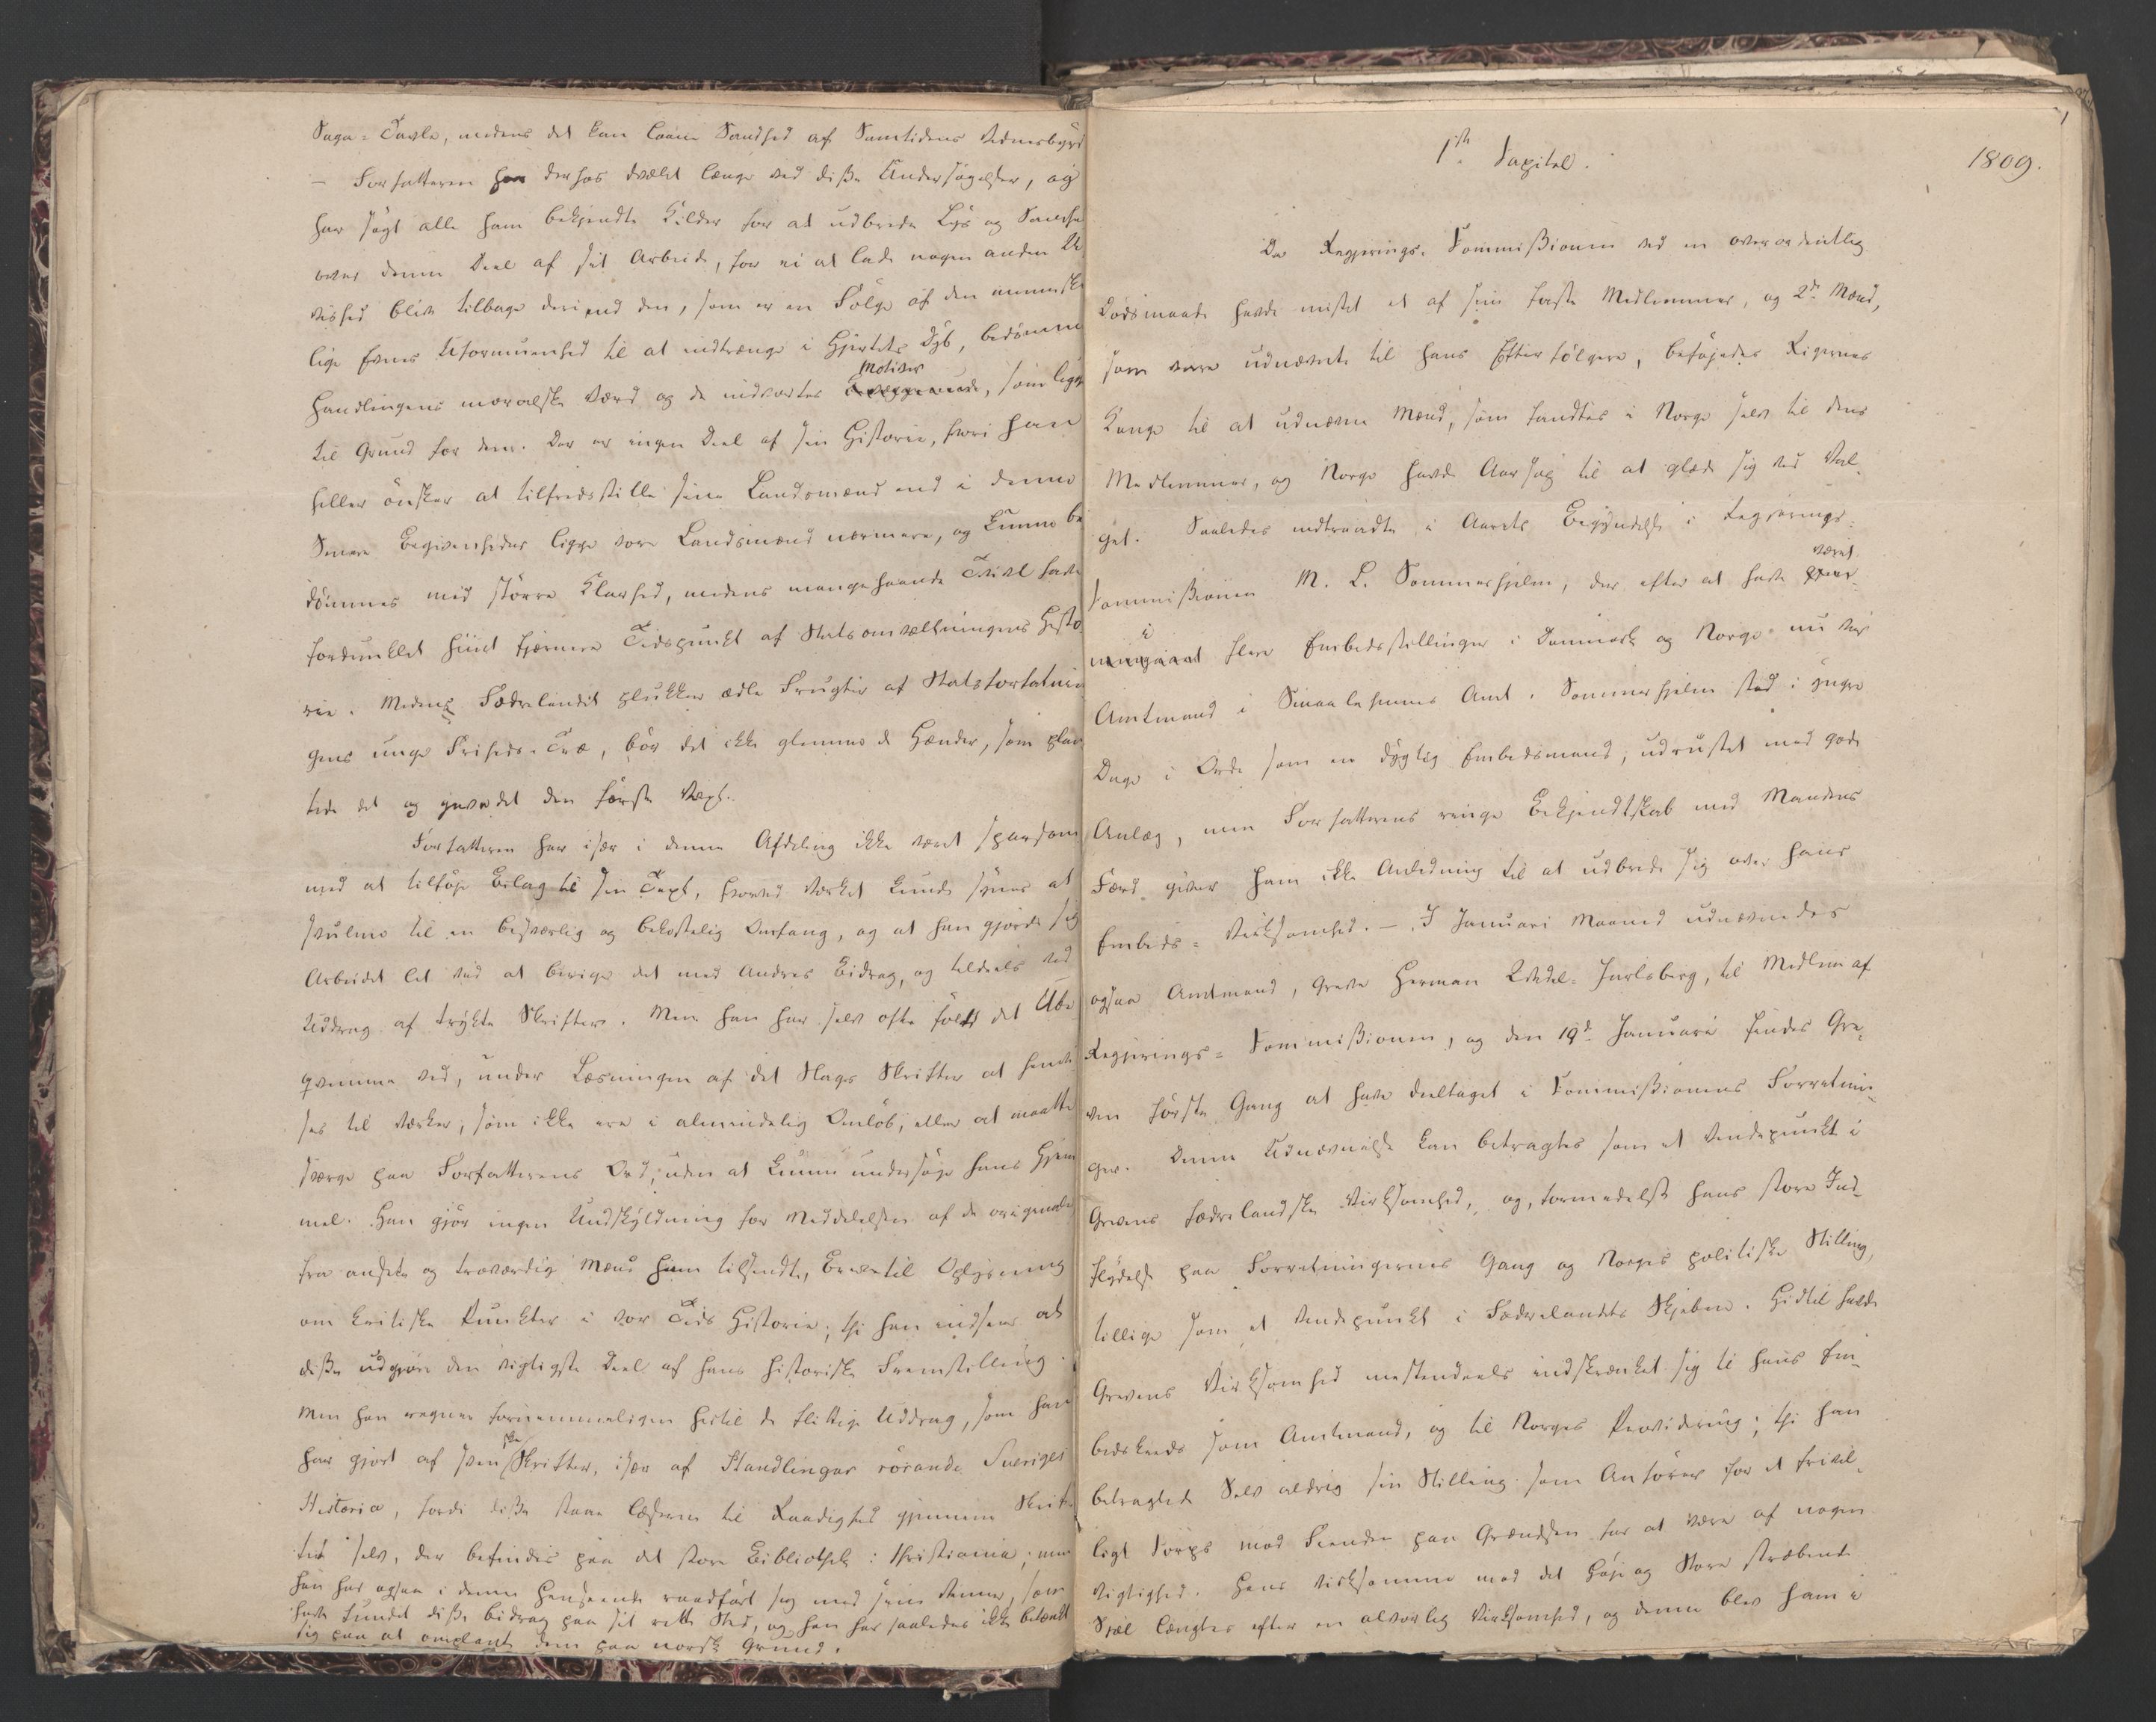 Saga-Tavle, medens det kan laane Sandhed af Samtidens Vidnesbyrd
— Forfatteren har derhos dvælet længe ved disse Undersøgelser, og
har søgt alle ham bekjendte Kilder for at udbrede Lys og Sandhe
over denne Deel af sit Arbeide, for ei at lade nogen anden U
vished blive tilbage deri end den, som er en Følge af den menneske
lige Evnes Uformuenhed til at indtrænge i Hjertets Dyb, bedømme
Motiver
Handlingens moralske Værd og de indvortes Bevæggrunde, som ligge
til Grund for dem. Der er ingen Deel af sin Historie, hvori han
heller ønsker at tilfredsstille sine Landsmænd end i denne
Senere Begivenheder ligge vore Landsmænd nærmere, og kunne be
dømmes med større Klarhed, medens mangehaande Tvivl have
fordunklet hiint fjernere Tidspunkt af Statsomvæltningens Histo
rie. Medens Fædrelandet plukker ædle Frugter af Statsforfatnin
gens unge Friheds-Træ, bør det ikke glemme de Hænder, som plan
tede det og gave det den første Væxt.
Forfatteren har især i denne Afdeling ikke været sparsom
med at tilføje Bilag til sin Text, hvorved Værket kunde synes at
svulme til en besværlig og bekostelig Omfang, og at han gjorde sig
Arbeidet let ved at berige det med Andres Bidrag, og tildeels ved
Uddrag af trykte Skrifter. Men han har selv ofte følt det Ube
qvemme ved, under Læsningen af det Slags Skrifter at henvi
ses til Værker, som ikke ere i almindelig Omløb, eller at maatte
sværge paa Forfatterens Ord, uden at kunne undersøge hans Hjem
mel. Han gjør ingen Undskyldning for Meddelelsen af de originale
fra ansete og troværdige Mænd ham tilsendte, Breve til Oplysning
om kritiske Punkter i vor Tids Historie; thi han indseer at
disse udgjøre den vigtigste Deel af hans historiske Fremstilling.
Men han regner fornemmeligen hertil de flittige Uddrag, som han
ske
har gjort af sven Skrifter, især af Handlingar rörande Sveriges
Historia, fordi disse staae Læseren til Raadighed gjennem Skrif
tet selv, der befindes paa det store Bibliothek i Christiania; men
han har ogsaa i denne Henseende raadført sig med sine Venner, som
have fundet disse Bidrag paa sit rette Sted, og han har saaledes ikke betænkt
sig paa at omplante dem paa norsk Grund.
1
1ste Capitel.
1809.
Da Regjerings-Commissionen ved en overordentlig
Dødsmaade havde mistet et af sine første Medlemmer, og 2de Mænd,
som vare udnævnte til hans Efterfølgere, beføjedes Rigernes
Konge til at udnævne Mænd, som fandtes i Norge selv til dens
Medlemmer, og Norge havde Aarsag til at glæde sig ved Val-
get. Saaledes indtraadte i Aarets Begyndelse i Regjerings-
været
Commissionen M. L. Sommerhjelm, der efter at have
i
flere Embedsstillinger i Danmark og Norge nu var
Amtmand i Smaalehnenes Amt. Sommerhjelm stod i yngre
Dage i Orde som en dygtig Embedsmand, udrustet med gode
Anlæg, men Forfatterens ringe Bekjendtskab med Mandens
Færd giver ham ikke Anledning til at udbrede sig over hans
Embeds-Virksomhed. — I Januari Maaned udnævnedes
ogsaa Amtmand, Greve Herman Wedel-Jarlsberg, til Medlem af
Regjerings-Commissionen, og den 19de Januari findes Gre-
ven første Gang at have deeltaget i Commissionens Forretnin-
ger. Denne Udnævnelse kan betragtes som et Vendepunkt i
Grevens fædrelandske Virksomhed, og, formedelst hans store Ind-
flydelse paa Forretningernes Gang og Norges politiske Stilling,
tillige som et Vendepunkt i Fædrelandets Skjebne. Hidtil havde
Grevens Virksomhed mestendeels indskrænket sig til hans Em-
bedskreds som Amtmand, og til Norges Providering; thi han
betragtede selv aldrig sin Stilling som Anfører for et frivil-
ligt Corps mod Fienden paa Grændsen for at være af nogen
Vigtighed. Hans virksomme mod det Høje og Store stræbende
Sjæl længtes efter en alvorlig Virksomhed, og denne blev ham i